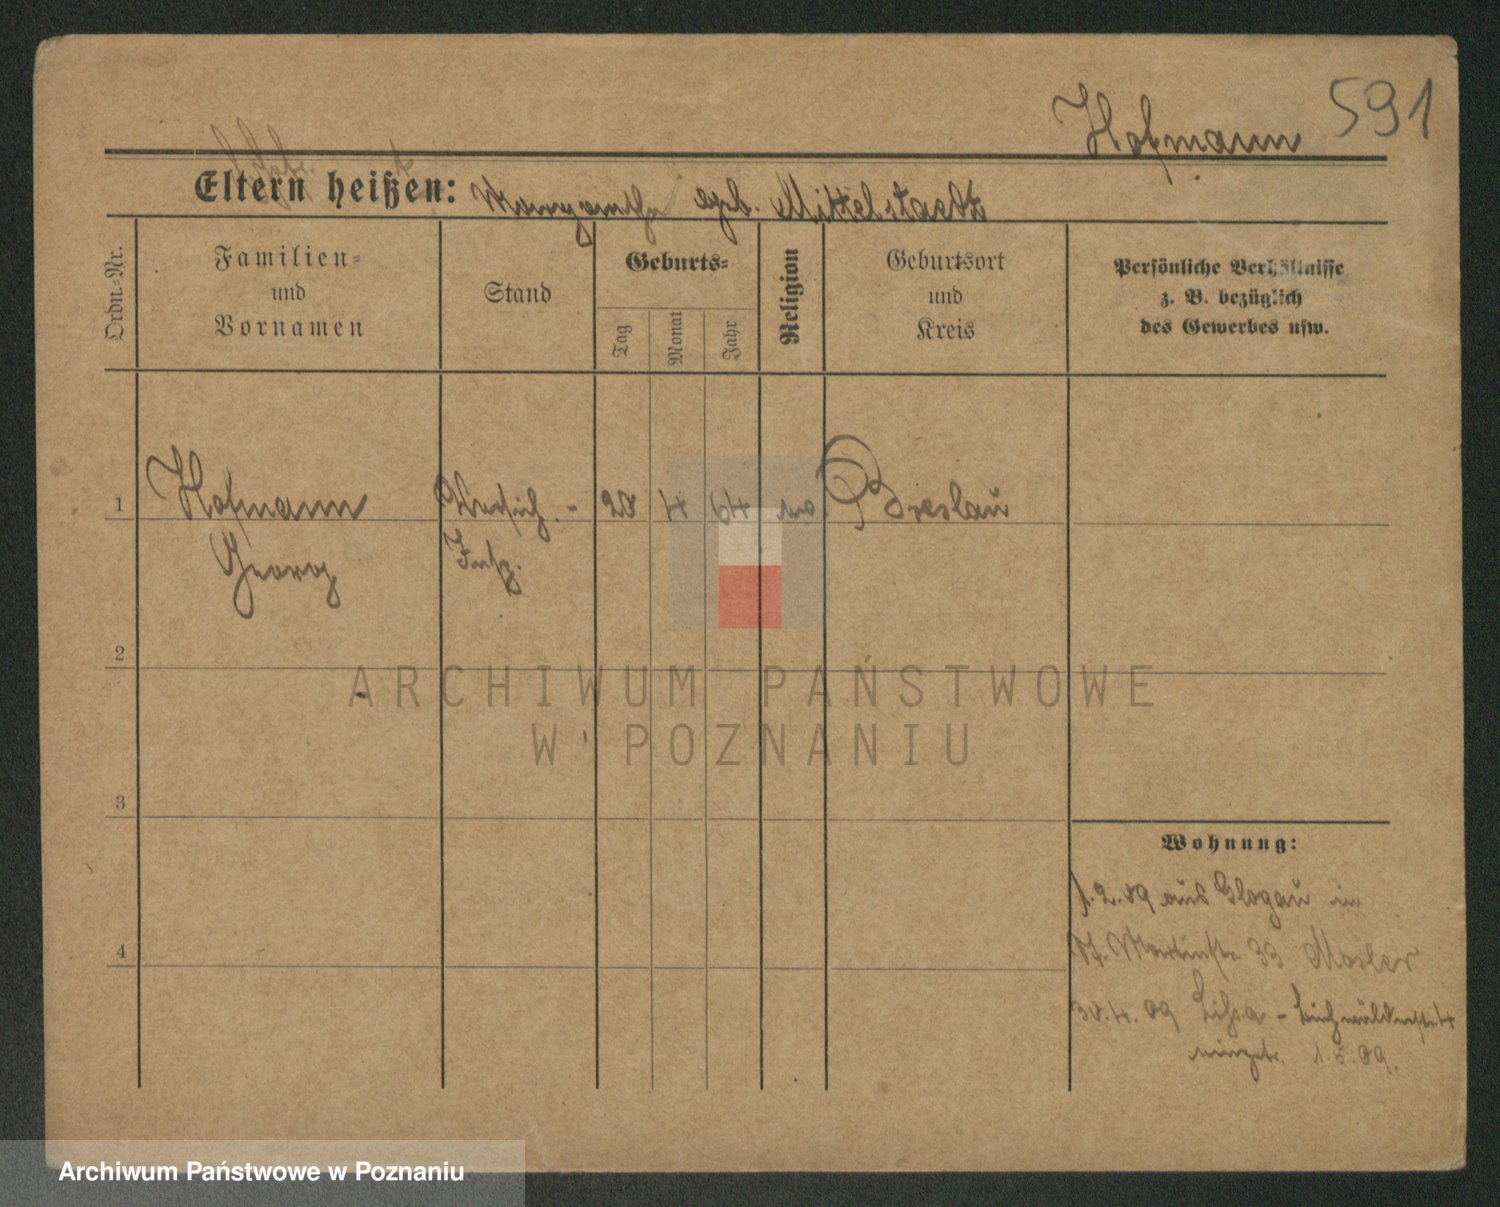 591
Hofmann
Eltern heißen: geb. Mittelstaedt
Ordn.-Nr.
Familien-
und
Vornamen
Stand
Geburts-
Tag
Monat
Jahr
Religion
Geburtsort
und
Kreis
Persönliche Verhältnisse
z. B. bezüglich
des Gewerbes usw.
1 Hofmann Versich.- 20 4 64 Breslau
Georg Insp.
2
ARCHIWUM PAŃSTWOWE
W POZNANIU
3
Wohnung:
1.2.09 aus Glogau in
St. Martinstr 33 Mosler
4
30.4.09 Lissa -
1.5.09.
Archiwum Państwowe w Poznaniu